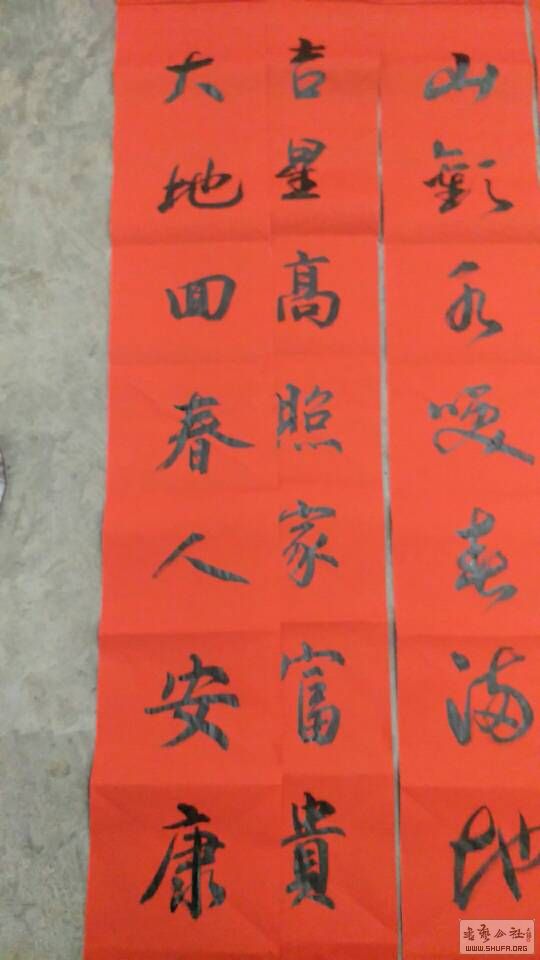 山歡水咲春满地
吉星髙照家富貴
大地囬春人安康
书艺公社
WWW.SHUFA.ORG